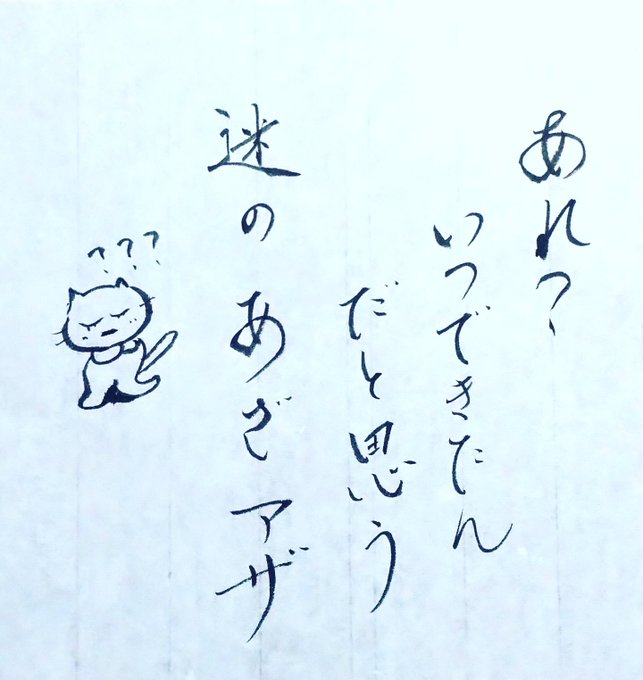 あれ?
いつできたん
だと思う
迷の あざ アザ
???